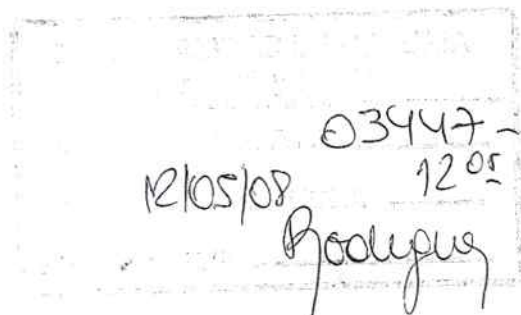 03447-
12 05
12/05/08
Rodrigues